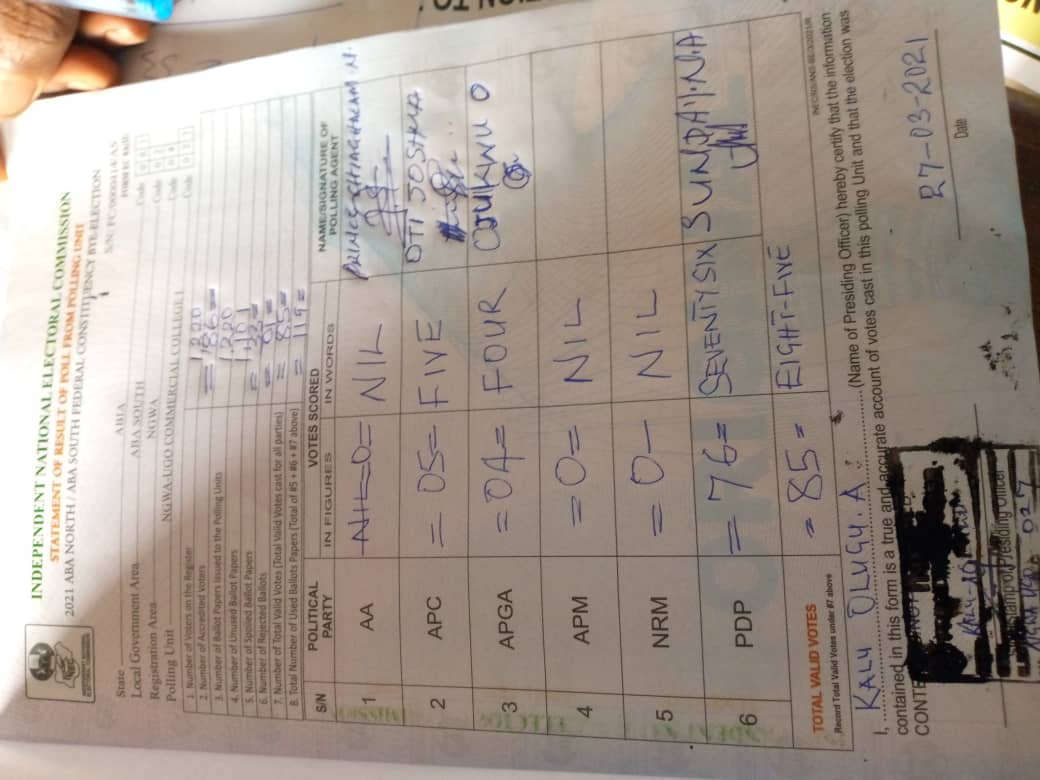 INDEPENDENT NATIONAL ELECTORAL COMMISSION
STATEMENT OF RESULT OF POLL FROM POLLING UNIT
2021 ABA NORTH / ABA SOUTH FEDERAL CONSTITUENCY BYE-ELECTION
FORM EC 8A(II)
State ABIA Code
Local Government Area ABA SOUTH Code
Registration Area NGWA Code
Polling Unit NGWA-UGO COMMERCIAL COLLEGE I Code
1. Number of Voters on the Register 1220
2. Number of Accredited Voters =86=
3. Number of Ballot Papers Issued to the Polling Units 1220
4. Number of Unused Ballot Papers 1101
5. Number of Spoiled Ballot Papers
6. Number of Rejected Ballots = 01=
7. Number of Total Valid Votes (Total Valid Votes cast for all parties) = 85=
8. Total Number of Used Ballots Papers (Total of #5 + #6 + #7 above) = 119=
S/N POLITICAL PARTY VOTES SCORED IN FIGURES IN WORDS NAME/SIGNATURE OF POLLING AGENT
1 AA =0= NIL
2 APC = 05= FIVE OTI JOSHUA
3 APGA = 04= FOUR OJUKWU O
4 APM = 0= NIL
5 NRM = 0- NIL
6 PDP = 76= SEVENTY SIX SUNDAY.N.A
TOTAL VALID VOTES = 85= EIGHT-FIVE
Record Total Valid Votes under #7 above
I, KALU OLUGU. A (Name of Presiding Officer) hereby certify that the information
contained in this form is a true and accurate account of votes cast in this polling Unit and that the election was
CONTE
27-03-2021
Date
Presiding Officer
027